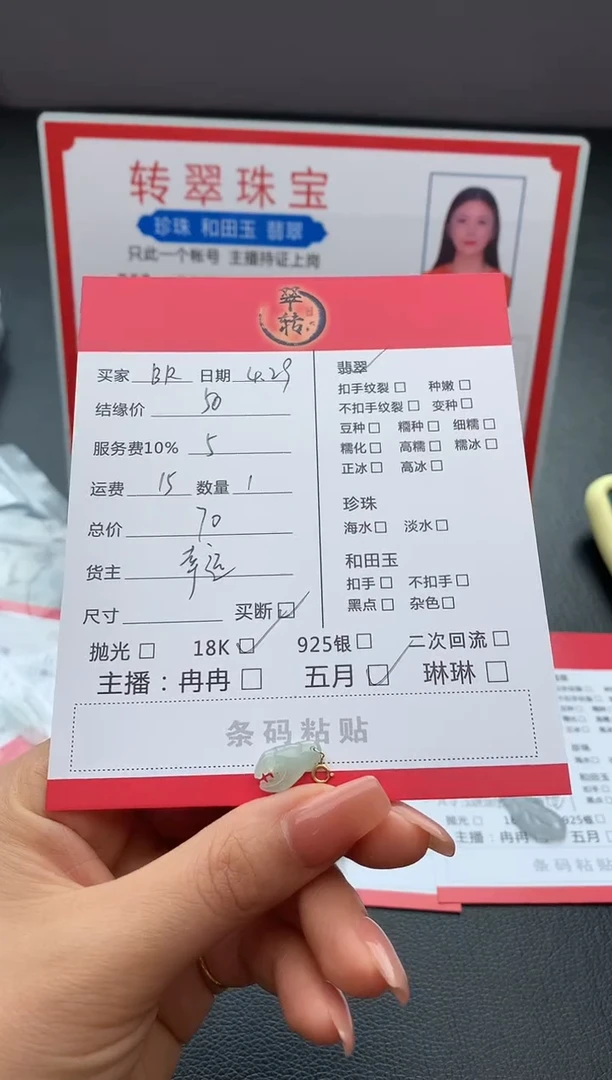 转翠珠宝
珍珠 和田玉 翡翠
只此一个帐号 主播持证上岗
翠
转
买家 BR 日期 4.29
结缘价 50
服务费10% 5
运费 15 数量 1
总价 70
货主 幸运
尺寸 买断
抛光 18K 925银 二次回流
主播：冉冉 五月 琳琳
条码粘贴
翡翠
扣手纹裂 种嫩
不扣手纹裂 变种
豆种 糯种 细糯
糯化 高糯 糯冰
正冰 高冰
珍珠
海水 淡水
和田玉
扣手 不扣手
黑点 杂色
抛光
主播：冉冉 五月
条码粘贴